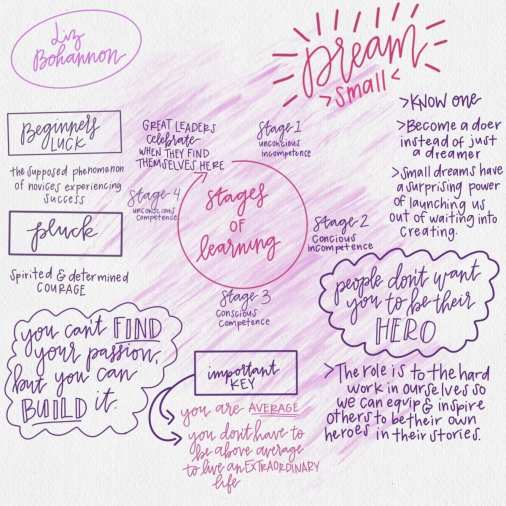 Liz
Bohannon
Dream
>small<
Beginner's
LUCK
the supposed phenomenon
of novices experiencing
success
pluck
Spirited & determined
COURAGE
you can't FIND
your passion,
but you can
BUILD it.
GREAT LEADERS
celebrate
WHEN THEY FIND
THEMSELVES HERE
Stage 1
unconscious
incompetence
Stage 4
unconscious
competence
stages
OF
learning
Stage 2
Concious
incompetence
Stage 3
Conscious
Competence
important
KEY
you are AVERAGE
you don't have to
be above average
to live an EXTRAORDINARY
life
>KNOW one
>Become a doer
instead of just
a dreamer
>Small dreams have
a surprising power
of launching us
out of waiting into
creating.
people don't want
you to be their
HERO
>The role is to the hard
work in ourselves so
we can equip & inspire
others to be their own
heroes in their stories.